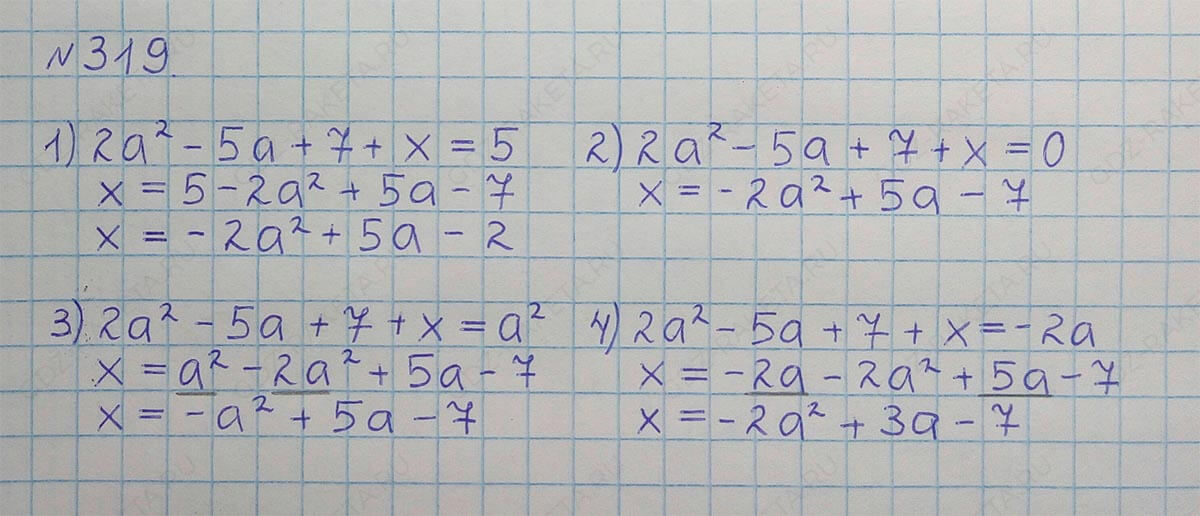 №319.
1) 2a² - 5a + 7 + x = 5
x = 5 - 2a² + 5a - 7
x = - 2a² + 5a - 2
2) 2a² - 5a + 7 + x = 0
x = - 2a² + 5a - 7
3) 2a² - 5a + 7 + x = a²
x = a² - 2a² + 5a - 7
x = - a² + 5a - 7
4) 2a² - 5a + 7 + x = - 2a
x = - 2a - 2a² + 5a - 7
x = - 2a² + 3a - 7